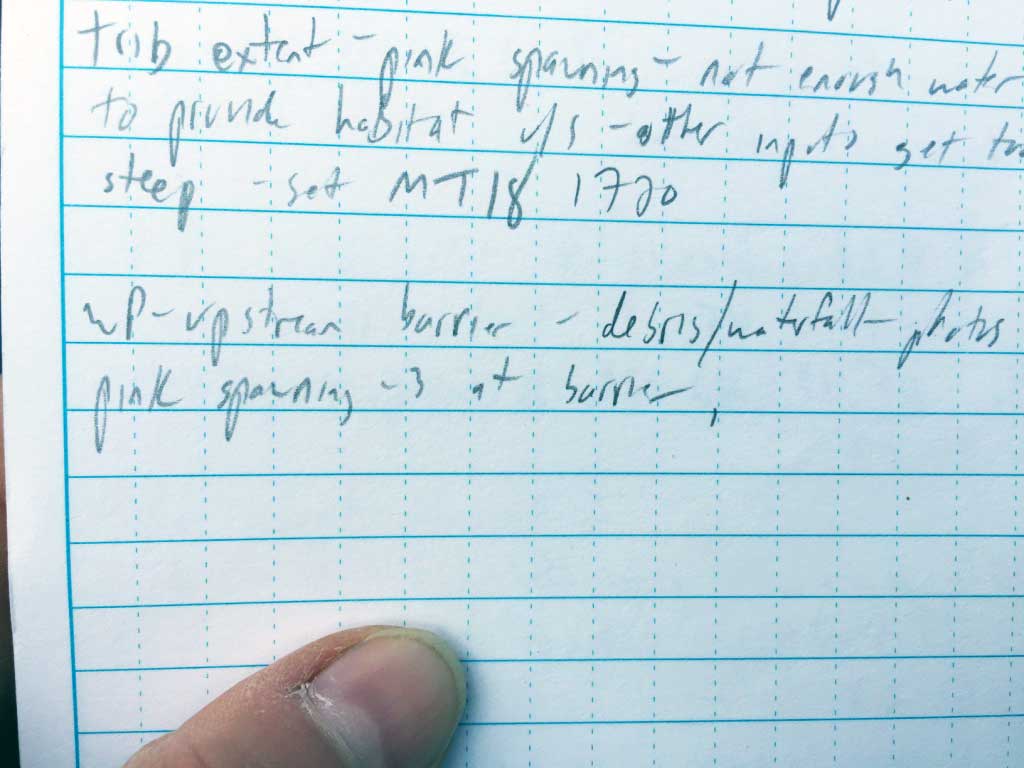 trib extent - pink spawning - not enough water
to provide habitat u/s - other inputs get too
steep - set MT18 1720
WP - upstream barrier - debris/waterfall - photos
pink spawning - 3 at barrier,